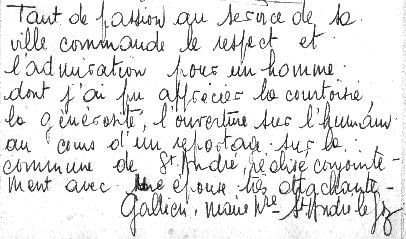 Tant de passion au service de sa
ville commande le respect et
l'admiration pour un homme
dont j'ai pu apprécier la courtoisie,
la générosité, l'ouverture sur l'humain
au cours d'un reportage sur la
commune de St André, réalisé conjointe-
ment avec une épouse très attachante -
Gallien. Marie Pre - St André le